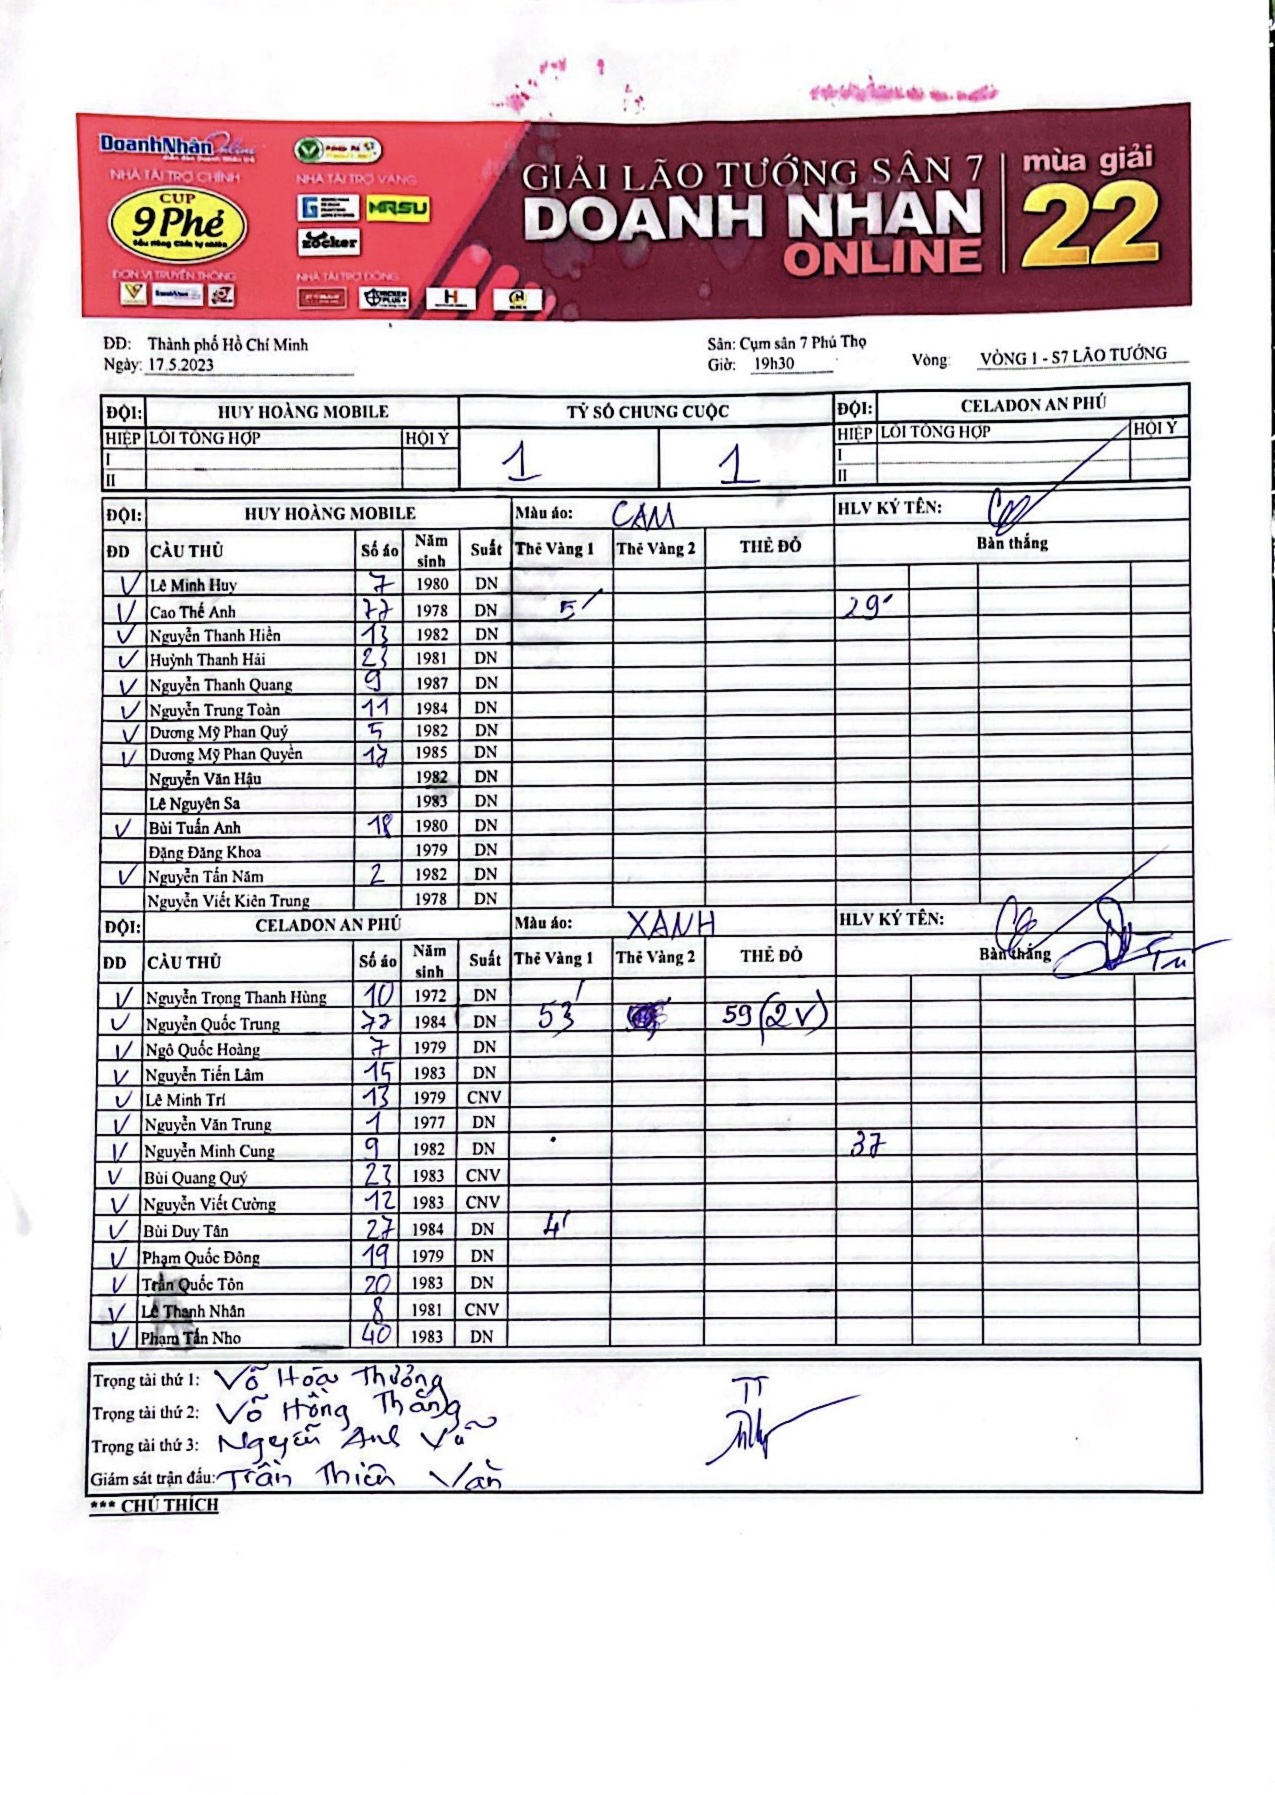 DoanhNhân Online
NHÀ TÀI TRỢ CHÍNH
NHÀ TÀI TRỢ VÀNG
CUP
9 Phẻ
MRSU
zocker
ĐƠN VỊ TRUYỀN THÔNG
NHÀ TÀI TRỢ ĐỒNG
GIẢI LÃO TƯỚNG SÂN 7
DOANH NHAN
ONLINE
mùa giải
22
ĐD: Thành phố Hồ Chí Minh
Sân: Cụm sân 7 Phú Thọ
Ngày: 17.5.2023
Giờ: 19h30
Vòng: VÒNG 1 - S7 LÃO TƯỚNG
ĐỘI: HUY HOÀNG MOBILE TỶ SỐ CHUNG CUỘC ĐỘI: CELADON AN PHÚ
HIỆP LỖI TỔNG HỢP HỘI Ý 1 1 HIỆP LỖI TỔNG HỢP HỘI Ý
I I
II II
ĐỘI: HUY HOÀNG MOBILE Màu áo: CAM HLV KÝ TÊN:
ĐD CẦU THỦ Số áo Năm sinh Suất Thẻ Vàng 1 Thẻ Vàng 2 THẺ ĐỎ Bàn thắng
V Lê Minh Huy 7 1980 DN
V Cao Thế Anh 77 1978 DN 5' 29'
V Nguyễn Thanh Hiền 13 1982 DN
V Huỳnh Thanh Hải 23 1981 DN
V Nguyễn Thanh Quang 9 1987 DN
V Nguyễn Trung Toàn 11 1984 DN
V Dương Mỹ Phan Quý 5 1982 DN
V Dương Mỹ Phan Quyền 17 1985 DN
Nguyễn Văn Hậu 1982 DN
Lê Nguyên Sa 1983 DN
V Bùi Tuấn Anh 18 1980 DN
Đặng Đăng Khoa 1979 DN
V Nguyễn Tấn Năm 2 1982 DN
Nguyễn Viết Kiên Trung 1978 DN
ĐỘI: CELADON AN PHÚ Màu áo: XANH HLV KÝ TÊN:
ĐD CẦU THỦ Số áo Năm sinh Suất Thẻ Vàng 1 Thẻ Vàng 2 THẺ ĐỎ Bàn thắng
V Nguyễn Trọng Thanh Hùng 10 1972 DN
V Nguyễn Quốc Trung 77 1984 DN 53' 59 (2V)
V Ngô Quốc Hoàng 7 1979 DN
V Nguyễn Tiến Lâm 15 1983 DN
V Lê Minh Trí 13 1979 CNV
V Nguyễn Văn Trung 1 1977 DN
V Nguyễn Minh Cung 9 1982 DN 37
V Bùi Quang Quý 23 1983 CNV
V Nguyễn Viết Cường 12 1983 CNV
V Bùi Duy Tân 27 1984 DN 4'
V Phạm Quốc Đông 19 1979 DN
V Trần Quốc Tôn 20 1983 DN
V Lê Thanh Nhân 8 1981 CNV
V Phạm Tấn Nho 40 1983 DN
Trọng tài thứ 1: Võ Hoài Thưởng
Trọng tài thứ 2: Võ Hồng Thắng
Trọng tài thứ 3: Nguyễn Anh Vũ
Giám sát trận đấu: Trần Thiên Vân
TT
*** CHÚ THÍCH